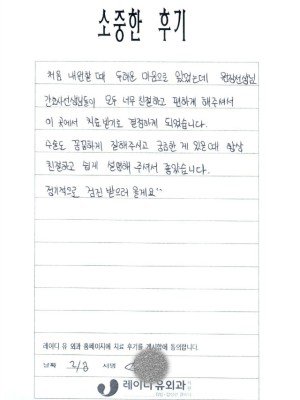 소중한 후기
처음 내원할 때 두려운 마음으로 왔었는데 원장선생님
간호사선생님들이 모두 너무 친절하고 편하게 해주셔서
이 곳에서 치료받기로 결정하게 되었습니다.
수술도 꼼꼼하게 잘해주시고 궁금한 게 있을 때 항상
친절하고 쉽게 설명해 주셔서 좋았습니다.
정기적으로 검진 받으러 올게요^^
레이디 유 외과 홈페이지에 치료 후기를 게시함에 동의합니다.
날짜 서명
레이디유외과